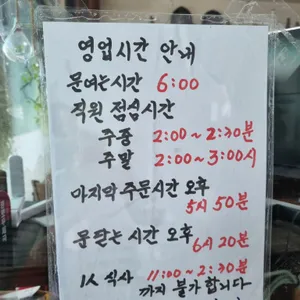 영업시간 안내
문여는시간 6:00
직원 점심시간
주중 2:00~2:30분
주말 2:00~3:00시
마지막 주문시간 오후
5시 50분
문닫는 시간 오후
6시 20분
1人 식사 11:00~2:30분
까지 불가 합니다